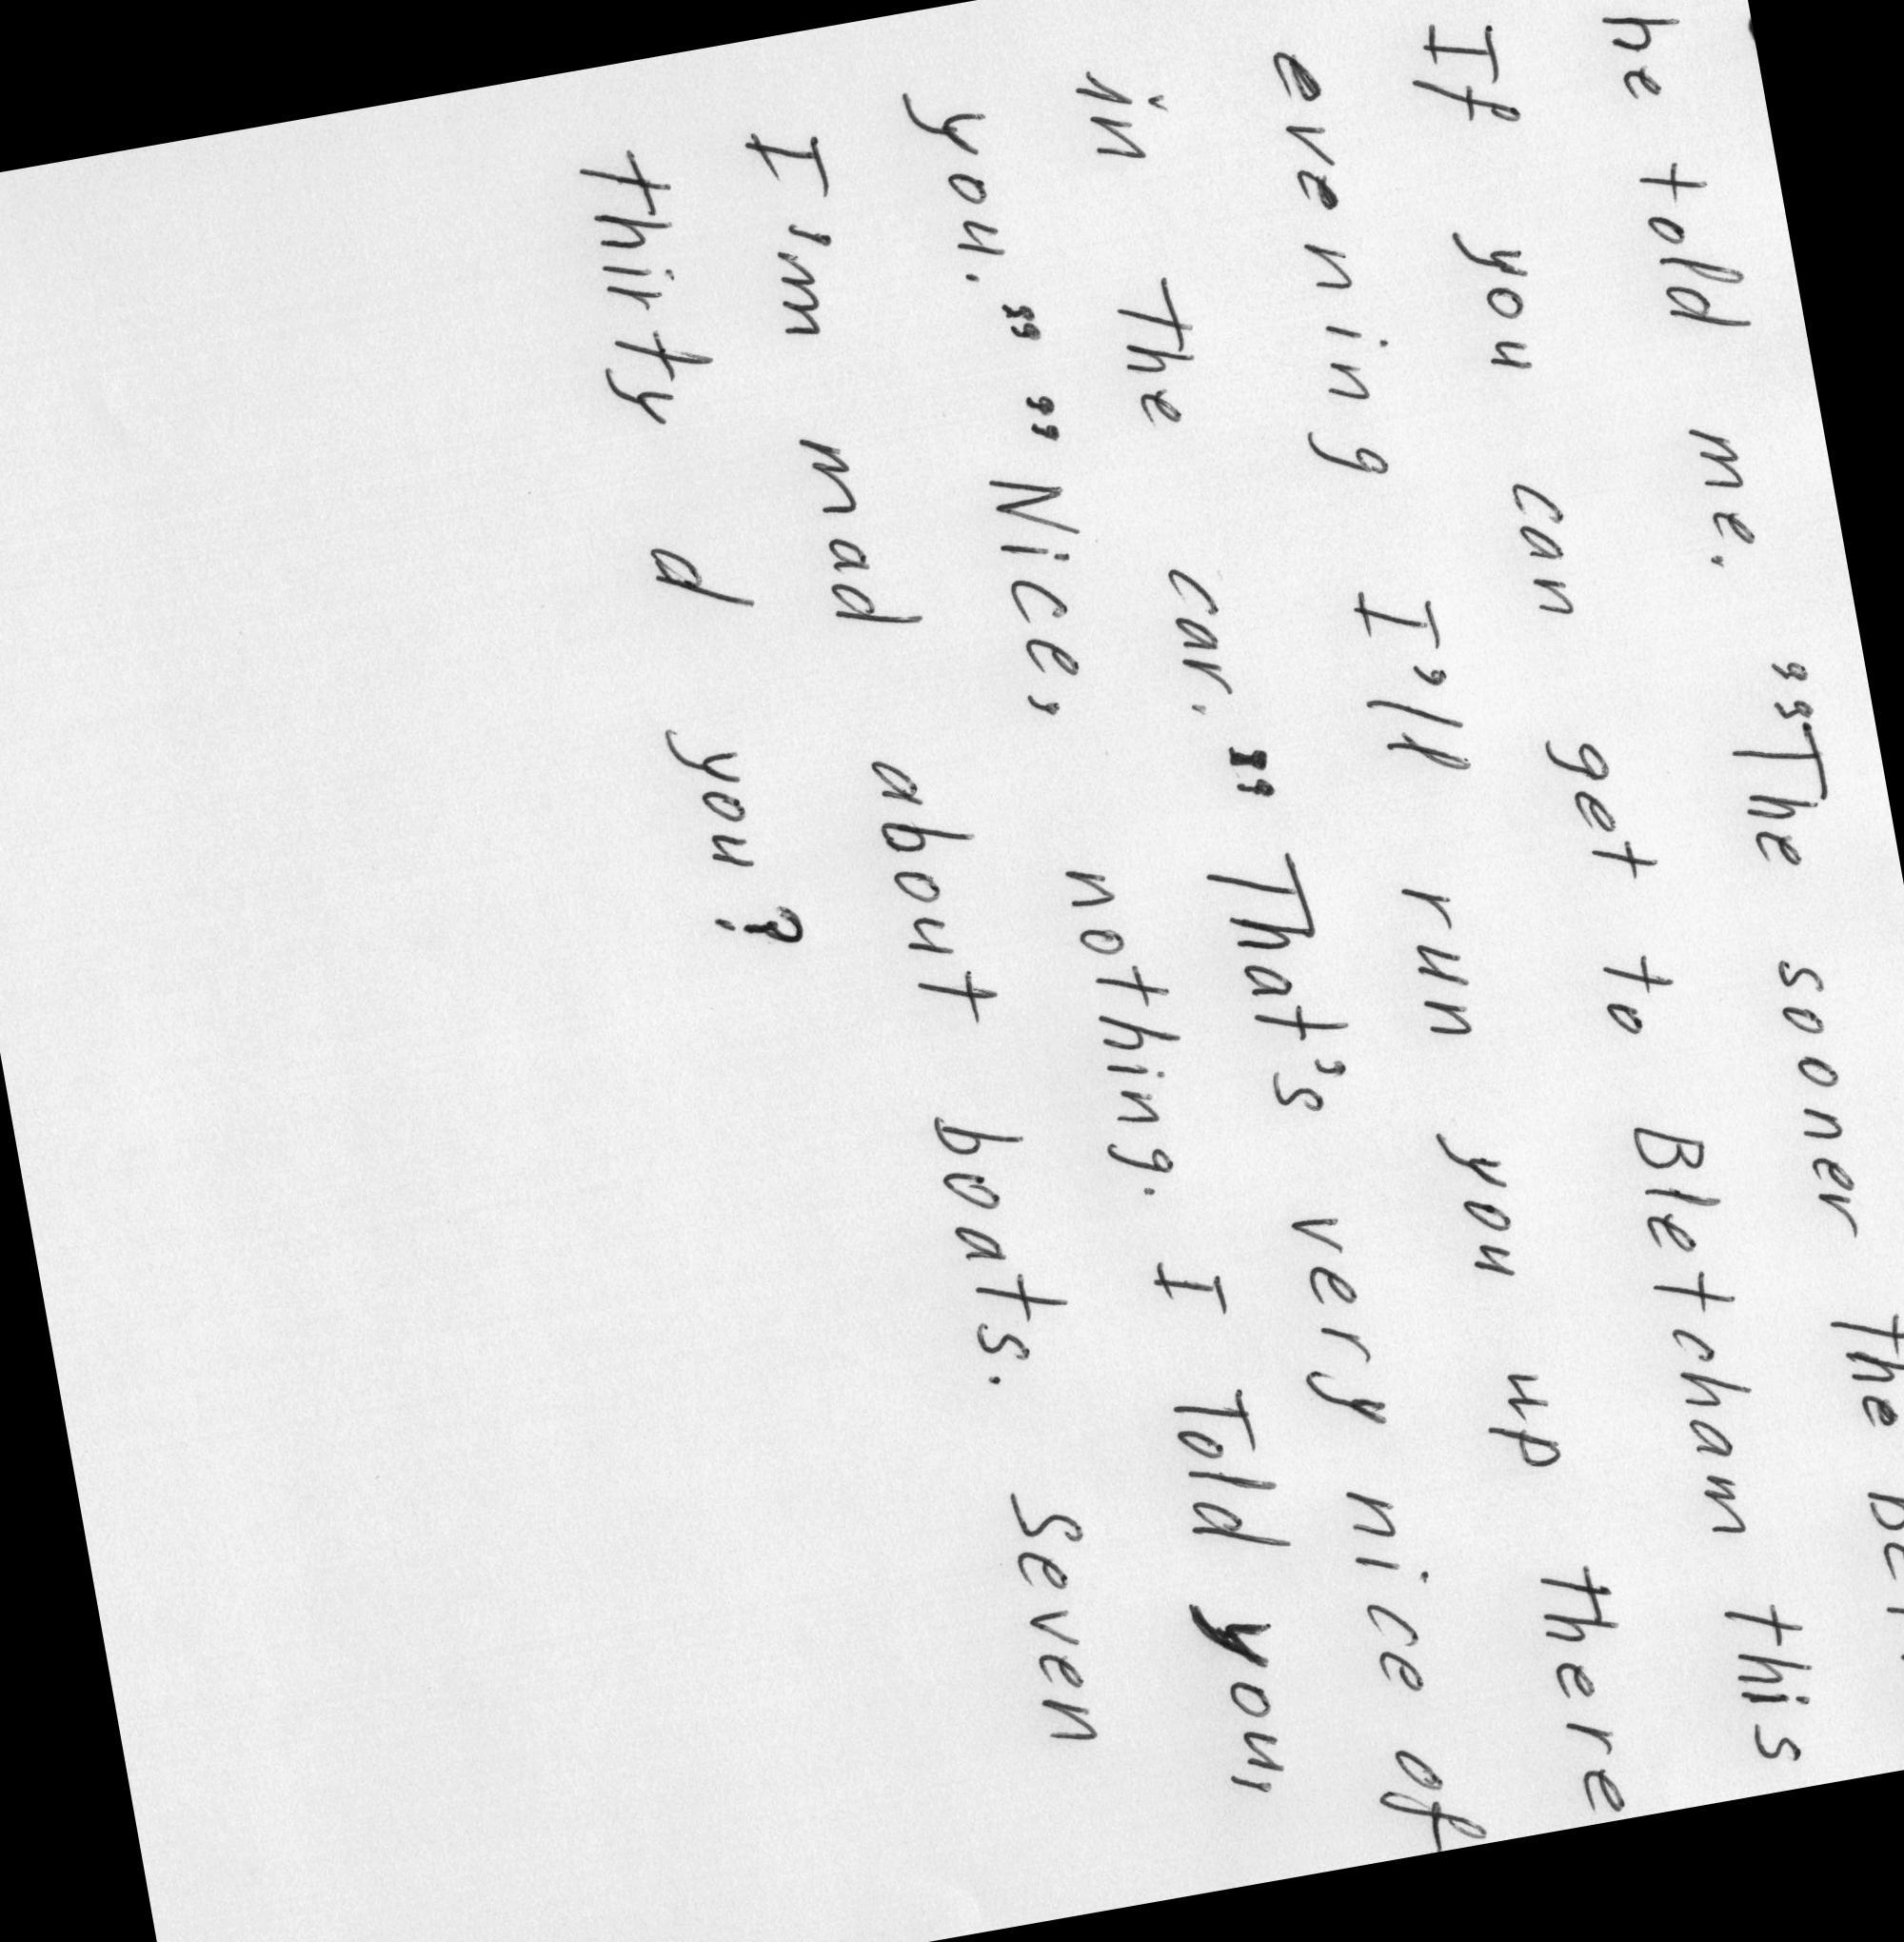 he told me. "The sooner the
If you can get to Bletcham this
evening I'll run you up there
in the car." "That's very nice of
you." "Nice, nothing. I Told you,
I'm mad about boats. Seven
thirty d you?